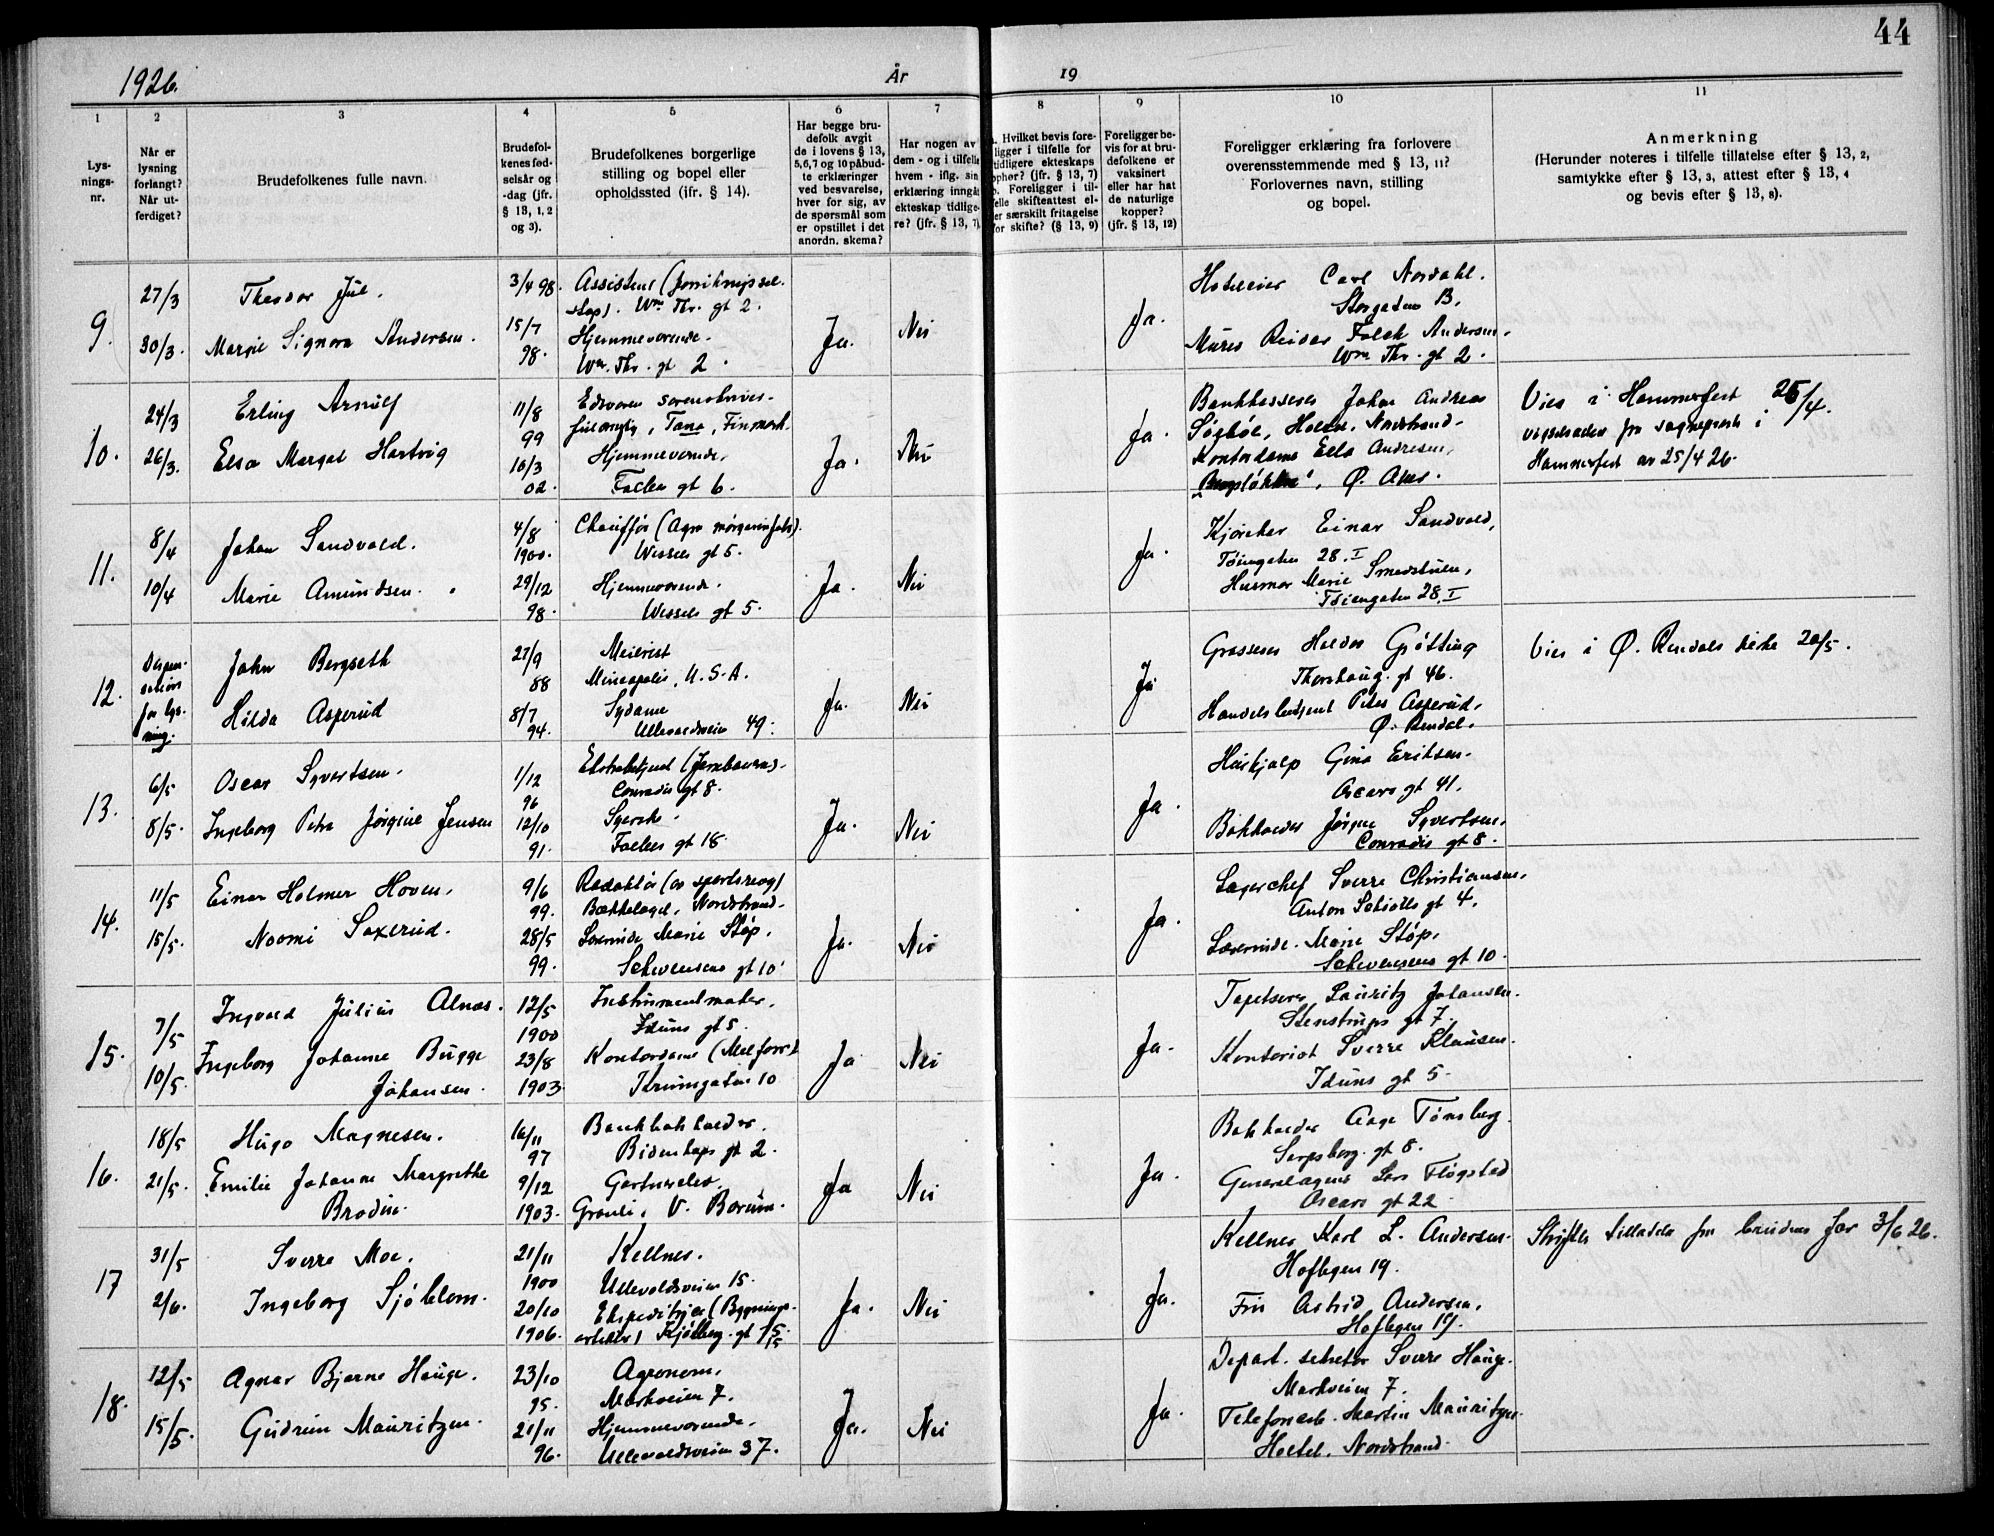 44
1926.
År
19
1
2
3
4
5
6
7
8
9
10
11
Lys-
nings-
nr.
Når er
lysning
forlangt?
Når ut-
ferdiget?
Brudefolkenes fulle navn.
Brudefol-
kenes fød-
selsår og
-dag (jfr.
§ 13, 1, 2
og 3).
Brudefolkenes borgerlige
stilling og bopel eller
opholdssted (ifr. § 14).
Har begge bru-
defolk avgit
de i lovens § 13,
5, 6, 7 og 10 påbud-
te erklæringer
ved besvarelse,
hver for sig, av
de spørsmål som
er opstillet i det
anordn. skema?
Har nogen av
dem - og i tilfelle
hvem - iflg. sin
erklæring inngått
ekteskap tidlige-
re? (jfr. § 13, 7)
Hvilket bevis fore-
ligger i tilfelle for
tidligere ekteskaps
ophør? (jfr. § 13, 7)
b. Foreligger i til-
felle skifteattest el-
ler særskilt fritagelse
for skifte? (§ 13, 9)
Foreligger be-
vis for at bru-
defolkene er
vaksinert
eller har hat
de naturlige
kopper?
(jfr. § 13, 12)
Foreligger erklæring fra forlovere
overensstemmende med § 13, 11?
Forlovernes navn, stilling
og bopel.
Anmerkning
(Herunder noteres i tilfelle tillatelse efter § 13, 2,
samtykke efter § 13, 3, attest efter § 13, 4
og bevis efter § 13, 8).
9.
27/3
30/3.
Theodor Jul.
Margie Signora Andersen.
3/4 98.
15/7
98.
Assistent
Wm Thr. gt 2.
Hjemmeværende.
Wm. Thr. gt 2.
Ja.
Nei
Ja.
Hoteleier Carl Nordahl.
Storgaten
Murer Reidar Falch Andersen.
Wm Thr. gt 2.
10.
24/3
26/3.
Erling Arnulf
Elsa Margot Hartvig
11/8
99
16/3
02.
Edsvoren sorenskriver-
fuldmegtig, Tana, Finmark.
Hjemmeværende.
Falbes gt 6.
Ja.
Nei
Ja.
Bankkasserer Johan Andreas
Holtet. Nordstrand.
Kontordame Ella Andresen,
Ø. Aker.
Viet i Hammerfest 25/4.
vigselsattest fra sogneprest i
Hammerfest av 25/4 26.
11.
8/4
10/4
Johan Sandvold.
Marie Amundsen.
4/8
1900.
29/12
98.
Chauffør (Agra margarinfabr).
Wessels gt 5.
Hjemmeværende.
Wessels gt 5.
Ja.
Nei
Ja.
Einar Sandvold,
Tøiengaten 28. I
Husmor Marie Smedstuen,
Tøiengaten 28. I
12.
Dispen-
sation
for lys-
ning.
John Bergseth
Hilda Asperud
27/9
88
8/7
94.
Meierist
Mineapolis, U.S.A.
Sydame
Ullevoldsveien 49.
Ja.
Nei
Ja
Grosserer Haldor Grøtting
Thorshaug. gt 46.
Handelsbetjent Peter Asperud,
Ø. Rendal.
Viet i Ø. Rendals kirke 20/5.
13.
6/5
8/5.
Oscar Syvertsen.
Ingeborg Petra Jørgine Jensen
1/12
96
12/10
91.
Ekstrabetjent (Jernbanens).
Conradis gt 8.
Syerske.
Falbes gt 18.
Ja.
Nei
Ja.
Huskjælp Gina Eriksen.
Oscars gt 41.
Bokholder Jørgen Syvertsen.
Conradis gt 8.
14.
11/5
15/5.
Einar Holmer Hoven.
Noomi Saxerud.
9/6
99.
28/5
99.
Redaktør (av sportsrevy)
Bækkelaget, Nordstrand.
Lærerinde Marie Støp.
Schwensens gt 10
Ja.
Nei
Ja.
Lagerchef Sverre Christiansen.
Anton Schiøtts gt 4.
Lærerinde. Marie Støp.
Schwensens gt 10.
15.
7/5
10/5.
Ingvald Julius Alnæs.
Ingeborg Johanne Bugge
Johansen.
12/5
1900
23/8
1903.
Instrumentmaker.
Iduns gt 5.
Kontordame
10
Ja
Nei
Ja.
Tapetserer Lauritz Johansen.
Stenstrups gt 7.
Kontorist Sverre Klausen.
Iduns gt 5.
16.
18/5
21/5.
Hugo Magnesen.
Emilie Johanne Margrethe
Brodin.
16/11
97
9/12
1903.
Bankbokholder.
Bidenkaps gt 2.
Gartnerelev.
V. Bærum.
Ja
Nei
Ja.
Bokholder Aage Tønsberg
Sarpsborg. gt 8.
Generalagent Lars Fløgstad
Oscars gt 22
17
31/5
2/6.
Sverre Moe.
Ingeborg Sjöblom.
21/11
1900
20/10
1906.
Kellner.
Ullevoldsveien 15.
Ekspeditrice (Bygnings-
Kjølberg. gt
Ja.
Nei
Ja.
Kellner Karl L. Andersen.
Hoftegen 19.
Fru Astrid Andersen.
Hoftegen 19.
Skriftlig tilladelse fra brudens far 3/6 26.
18.
12/5
15/5.
Agnar Bjarne Hauge.
Gudrun Mauritzen.
23/10
95.
21/11
96.
Agronom.
Markveien 7.
Hjemmeværende.
Ullevoldsveien 37.
Ja.
Nei
Ja.
Depart. sekretær Sverre Hauge.
Markveien 7.
Telefonarb. Martin Mauritzen.
Holtet. Nordstrand.